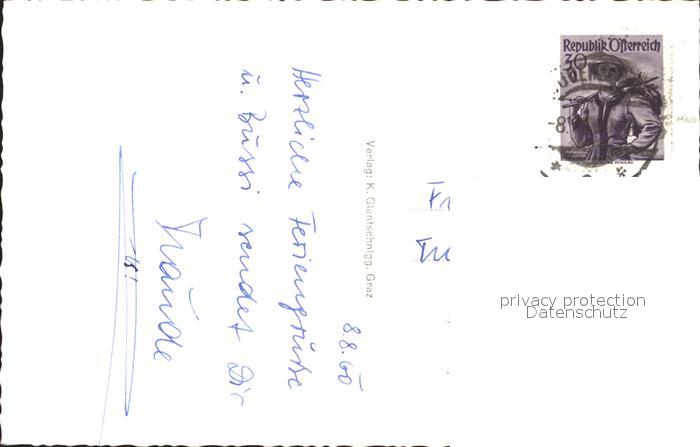 8.8.60
Herzliche Feriengrüße
u. Bussi sendet Dir
Traude
Verlag: K. Glantschnigg, Graz
Republik Österreich
30
Fr
privacy protection
Datenschutz